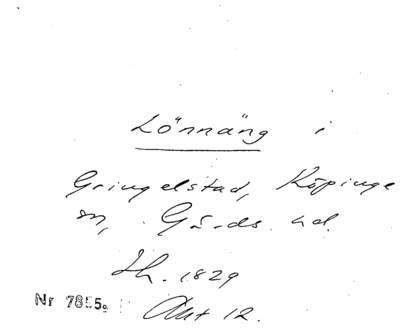 Lönnäng i
Gringelstad, Köpinge
sn, Gärds hd.
Lh. 1829
Akt 12.
Nr 7855.